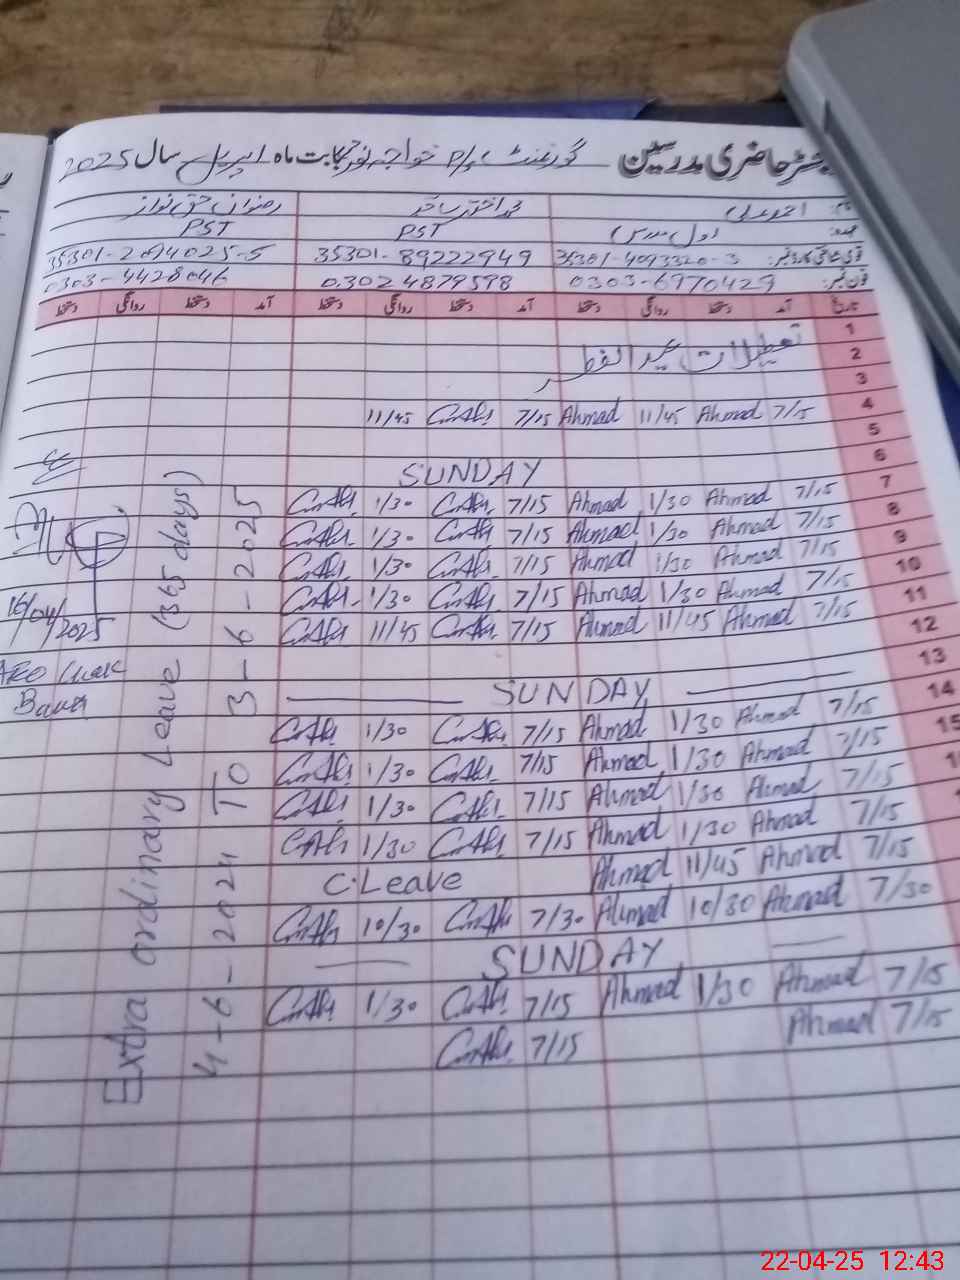 رجسٹر حاضری مدرسین گورنمنٹ P/S خواجہ نور بابت ماہ اپریل سال 2025
احمد علی محمد اختر ساقی رضوان حق نواز
عہدہ: اول مدرس PST PST
قومی شناختی کارڈ نمبر: 35301-4093320-3 35301-89222949 35301-2014025-5
فون نمبر: 0303-6970429 03024879598 0303-4428046
تاریخ آمد دستخط روانگی دستخط آمد دستخط روانگی دستخط آمد دستخط روانگی دستخط
1
2 تعطیلات عید الفطر
3
4 7/15 Ahmad 11/45 Ahmad 7/15 11/45
5
6 SUNDAY
7 7/15 Ahmad 1/30 Ahmad 7/15 1/30
8 7/15 Ahmad 1/30 Ahmad 7/15 1/30
9 7/15 Ahmad 1/30 Ahmad 7/15 1/30
10 7/15 Ahmad 1/30 Ahmad 7/15 1/30
11 7/15 Ahmad 11/45 Ahmad 7/15 11/45
12
13 SUNDAY
14 7/15 Ahmad 1/30 Ahmad 7/15 1/30
15 7/15 Ahmad 1/30 Ahmad 7/15 1/30
7/15 Ahmad 1/30 Ahmad 7/15 1/30
7/15 Ahmad 1/30 Ahmad 7/15 1/30
7/15 Ahmad 11/45 Ahmad C.Leave
7/30 Ahmad 10/30 Ahmad 7/30 10/30
SUNDAY
7/15 Ahmad 1/30 Ahmad 7/15 1/30
7/15 Ahmad 7/15
Extra ordinary Leave (365 days)
4-6-2024 TO 3-6-2025
16/04/2025
22-04-25 12:43